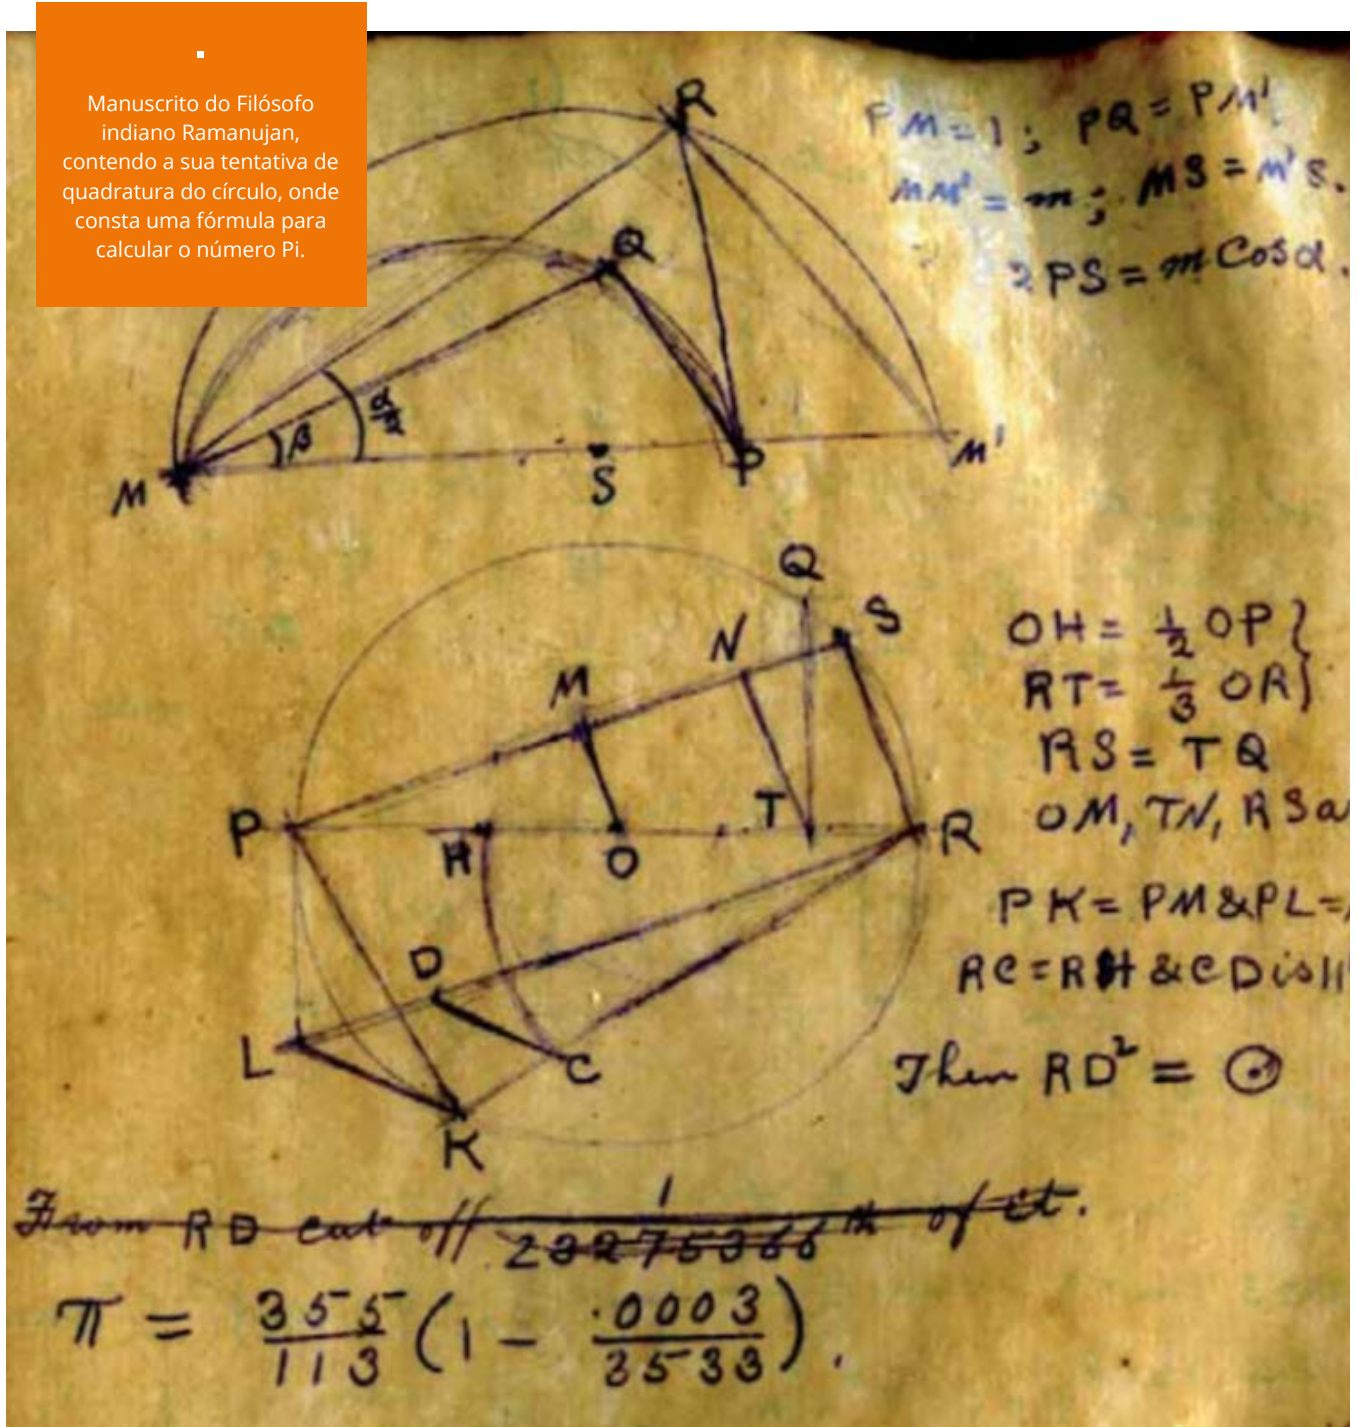 Manuscrito do Filósofo
indiano Ramanujan,
contendo a sua tentativa de
quadratura do círculo, onde
consta uma fórmula para
calcular o número Pi.
PM=1; PQ=PM'.
MM'=m; MS=M'S.
2PS=m Cosα.
R
Q
β
α/2
M
S
P
M'
Q
S
N
M
P
H
O
T
R
D
L
C
K
OH = 1/2 OP}
RT = 1/3 OR}
RS = TQ
OM, TN, RS a
PK = PM & PL =
RC = RH & CD is ||
Then RD² = ⊙
From RD cut off 1/23275366 th of it.
π = 355/113 (1 - .0003/3533).